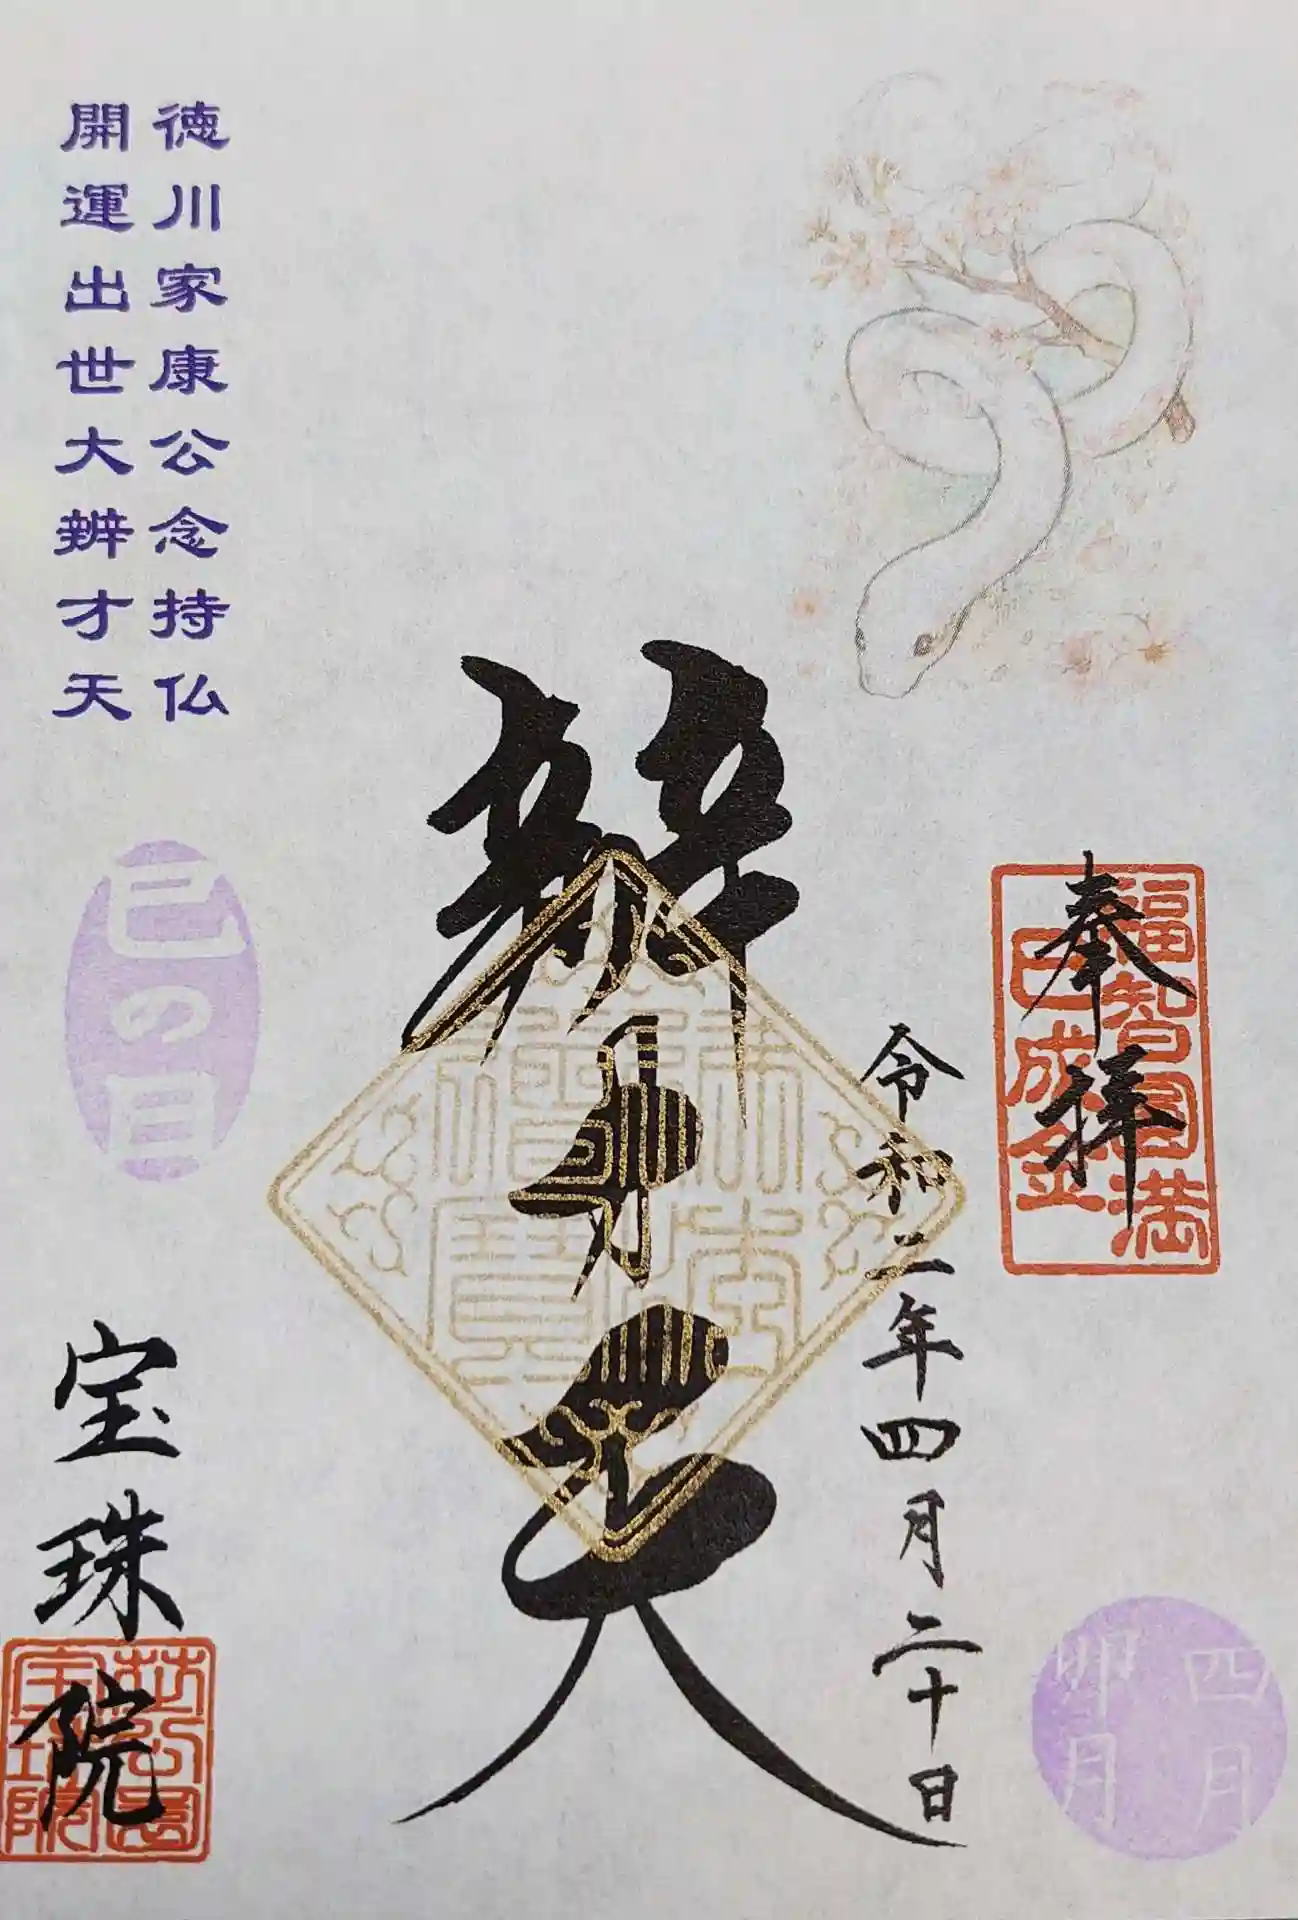 福智円満
巳成金
奉拝
令和二年四月二十日
四月
卯月
辨才天
徳川家康公念持仏
開運出世大辨才天
巳の日
宝珠院
芝公園
宝珠院